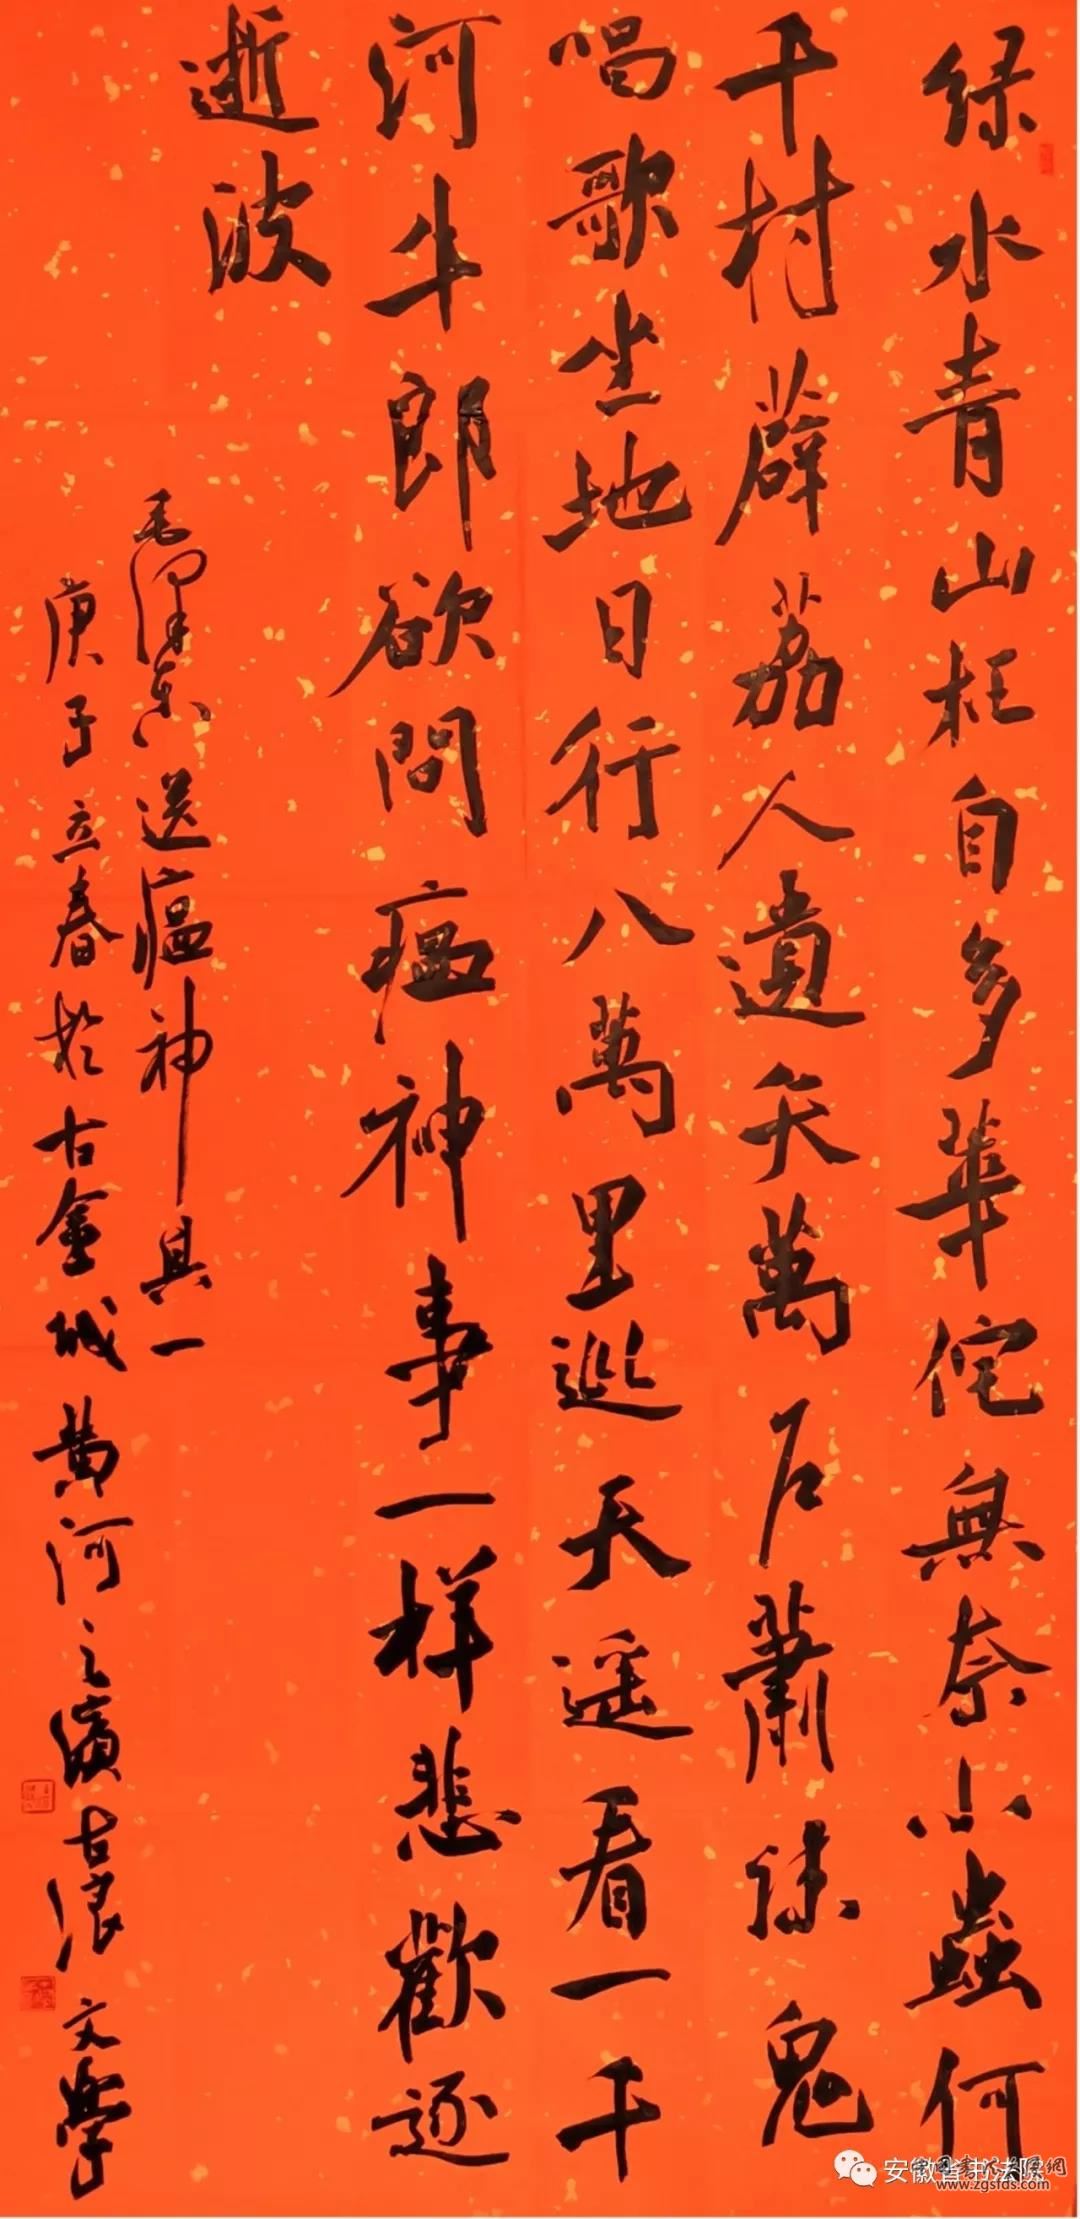 绿水青山枉自多華佗無奈小蟲何
千村薜荔人遺矢萬户蕭疎鬼
唱歌坐地日行八萬里巡天遥看一千
河牛郎欲問瘟神事一样悲歡逐
逝波
毛澤東送瘟神其一
庚子立春於古金城黄河之濱古浪文學
安徽省书法院
www.zgsfds.com